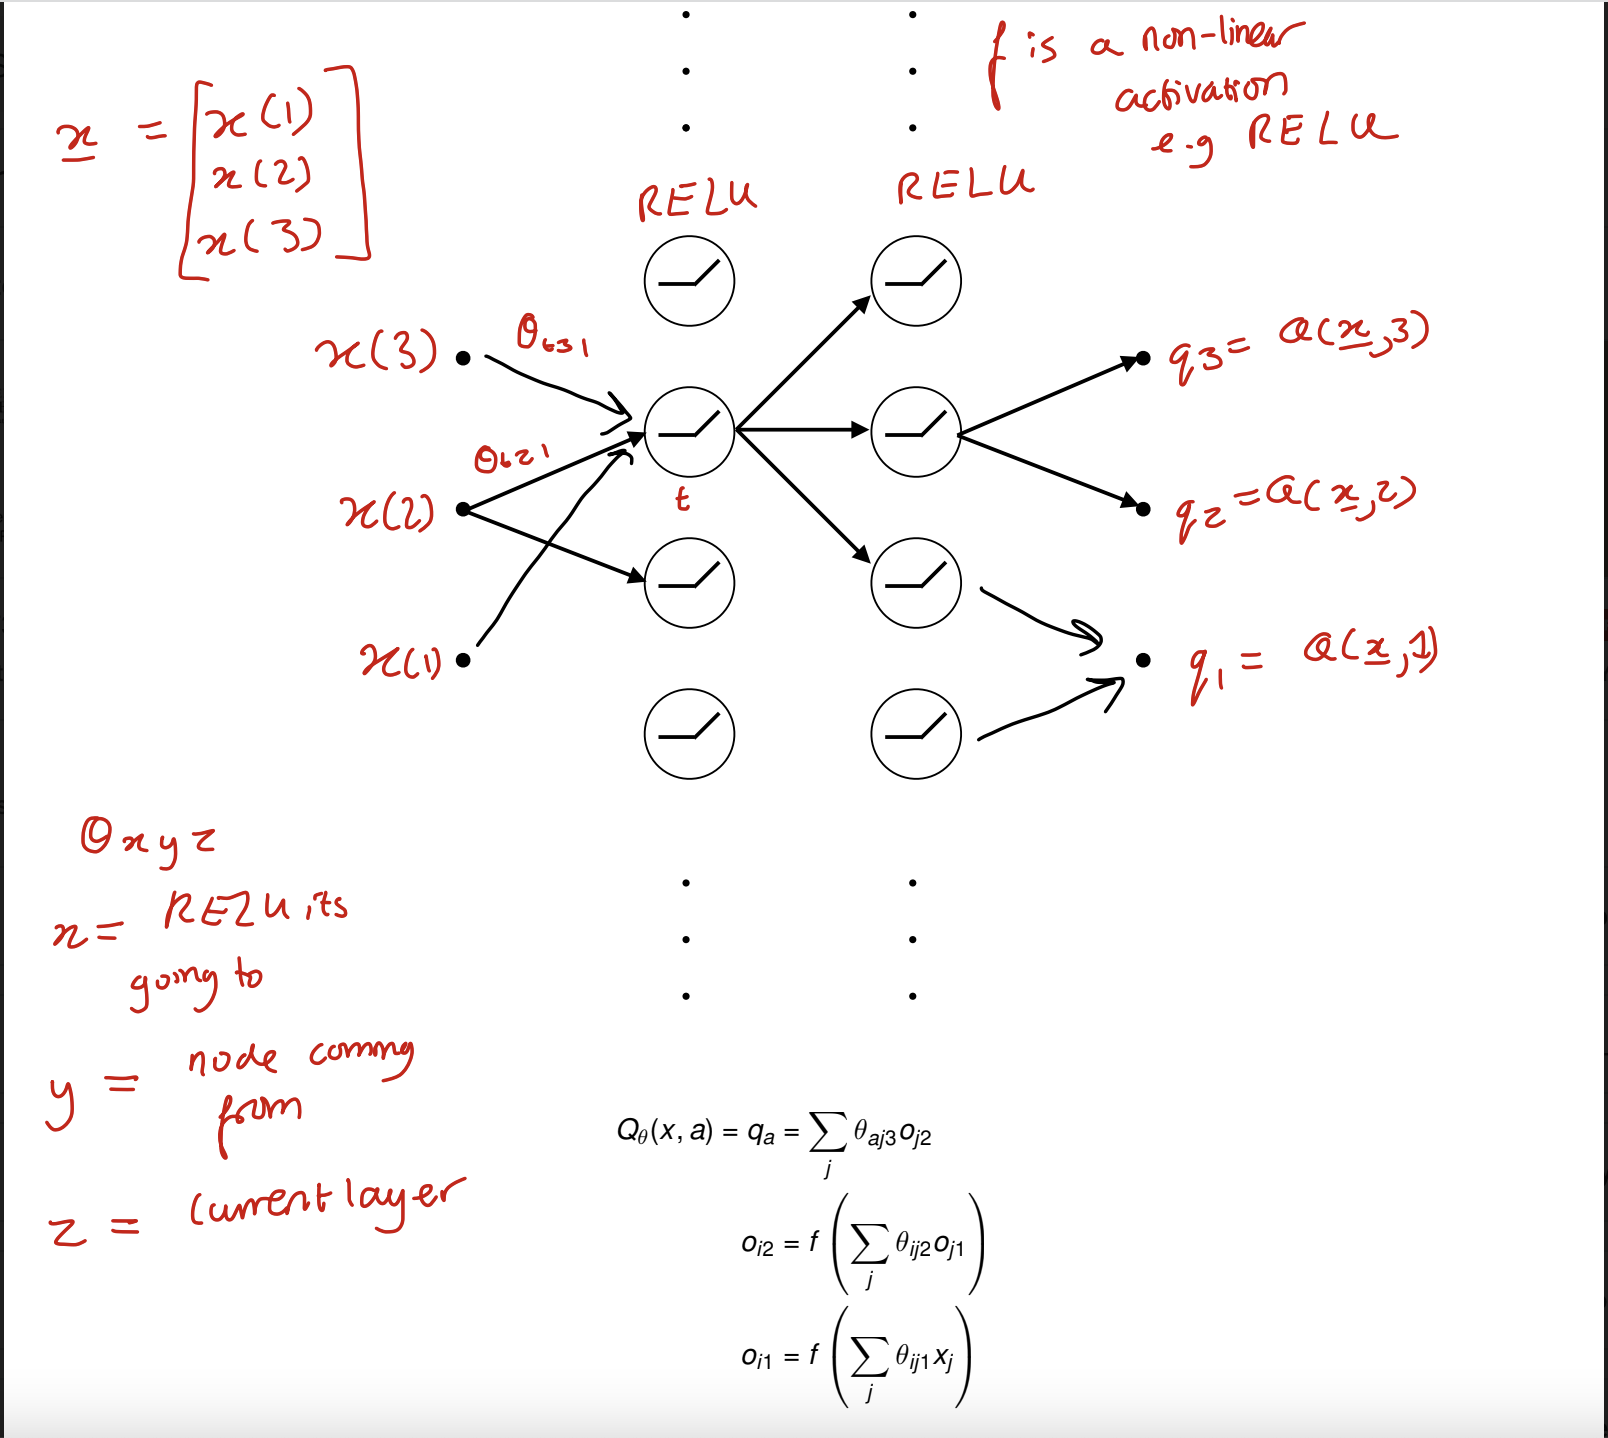 f is a non-linear
activation
e.g RELU
x = [x(1)
x(2)
x(3)]
RELU
RELU
x(3)
θt31
q3 = Q(x,3)
θt21
t
x(2)
q2 = Q(x,2)
x(1)
q1 = Q(x,1)
θxyz
x = RELU its
going to
y = node coming
from
z = current layer
Qθ(x, a) = qa = ∑j θaj3oj2
oi2 = f (∑j θij2oj1)
oi1 = f (∑j θij1xj)